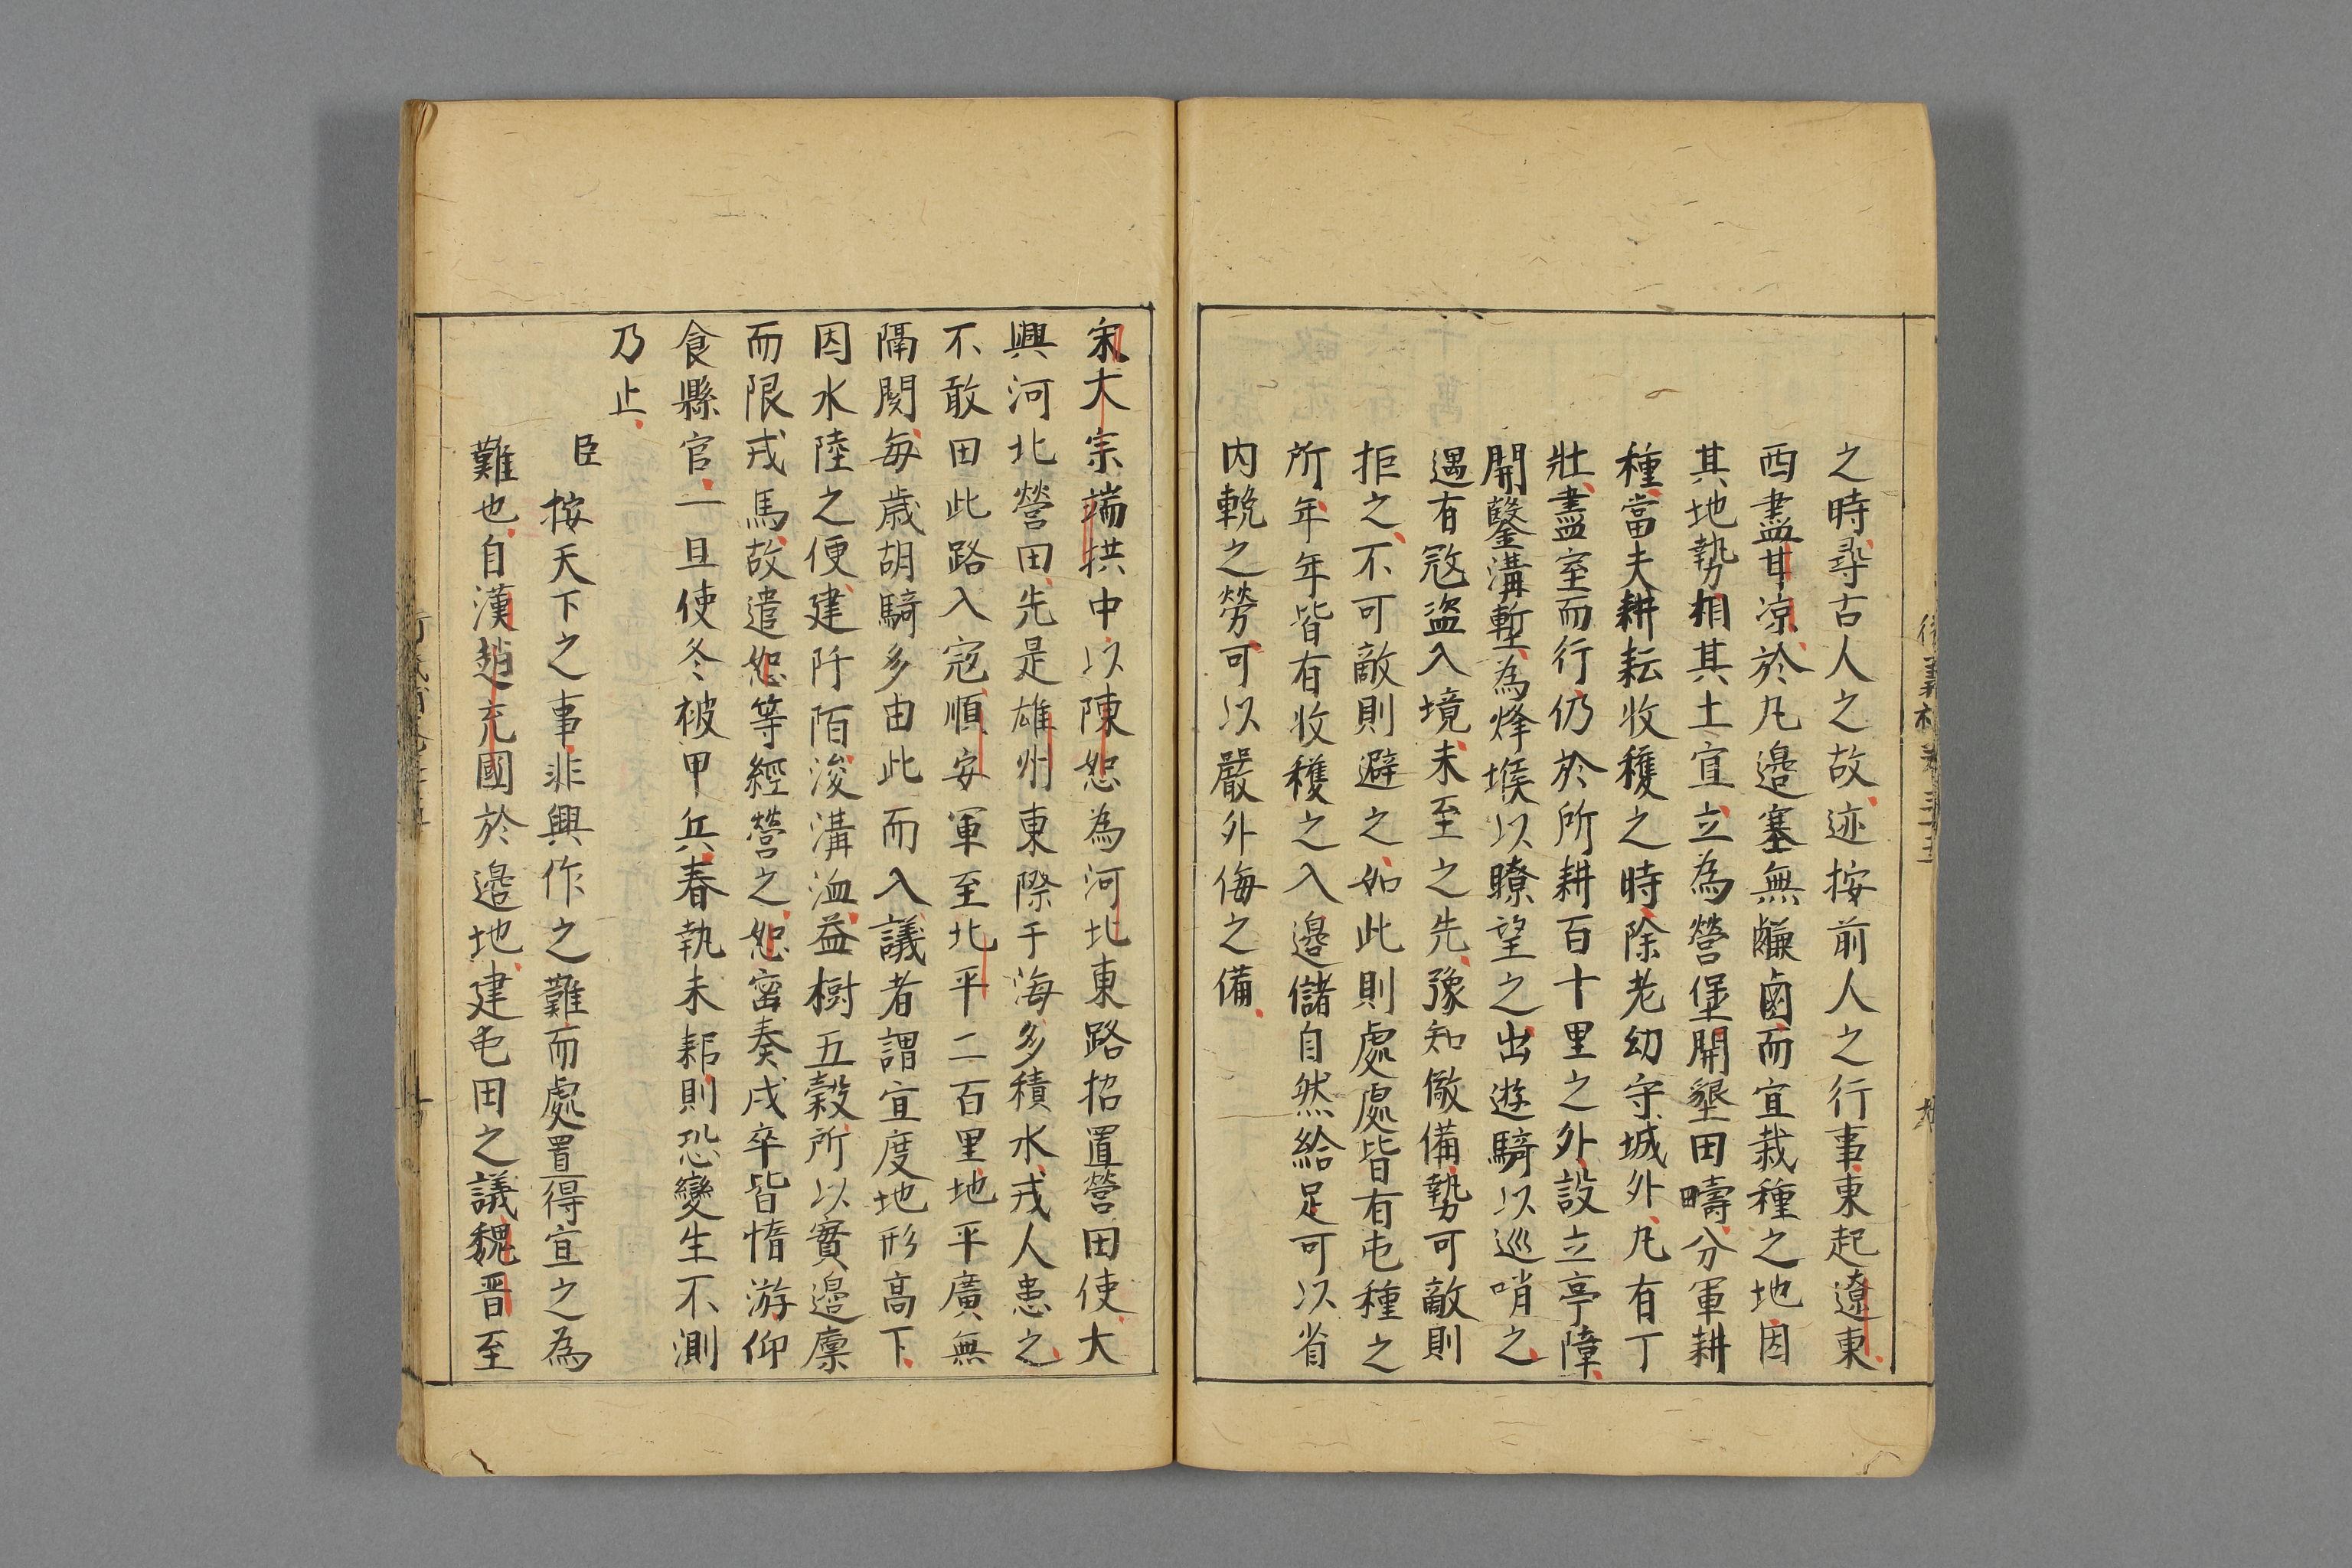 之時尋古人之故迹按前人之行事東起遼東
西盡甘凉於凡邉塞無鹻鹵而宜栽種之地因
其地勢相其土宜立為營堡開墾田疇分軍耕
種當夫耕耘收穫之時除老幼守城外凡有丁
壯盡室而行仍於所耕百十里之外設立亭障
開鑿溝塹為烽堠以瞭望之出遊騎以巡哨之
遇有宼盜入境未至之先豫知儆備勢可敵則
拒之不可敵則避之如此則處處皆有屯種之
所年年皆有收穫之入邉儲自然給足可以省
内輓之勞可以嚴外侮之備
宋大宗端拱中以陳恕為河北東路招置營田使大
興河北營田先是雄州東際于海多積水戎人患之
不敢田此路入宼順安軍至北平二百里地平廣無
隔閡每歲胡騎多由此而入議者謂宜度地形高下
因水陸之便建阡陌浚溝洫益樹五穀所以實邉廪
而限戎馬故遣恕等經營之恕宻奏戍卒皆惰游仰
食縣官一旦使冬被甲兵春執耒耜則恐變生不測
乃止
臣按天下之事非興作之難而處置得宜之為
難也自漢趙充國於邉地建屯田之議魏晋至